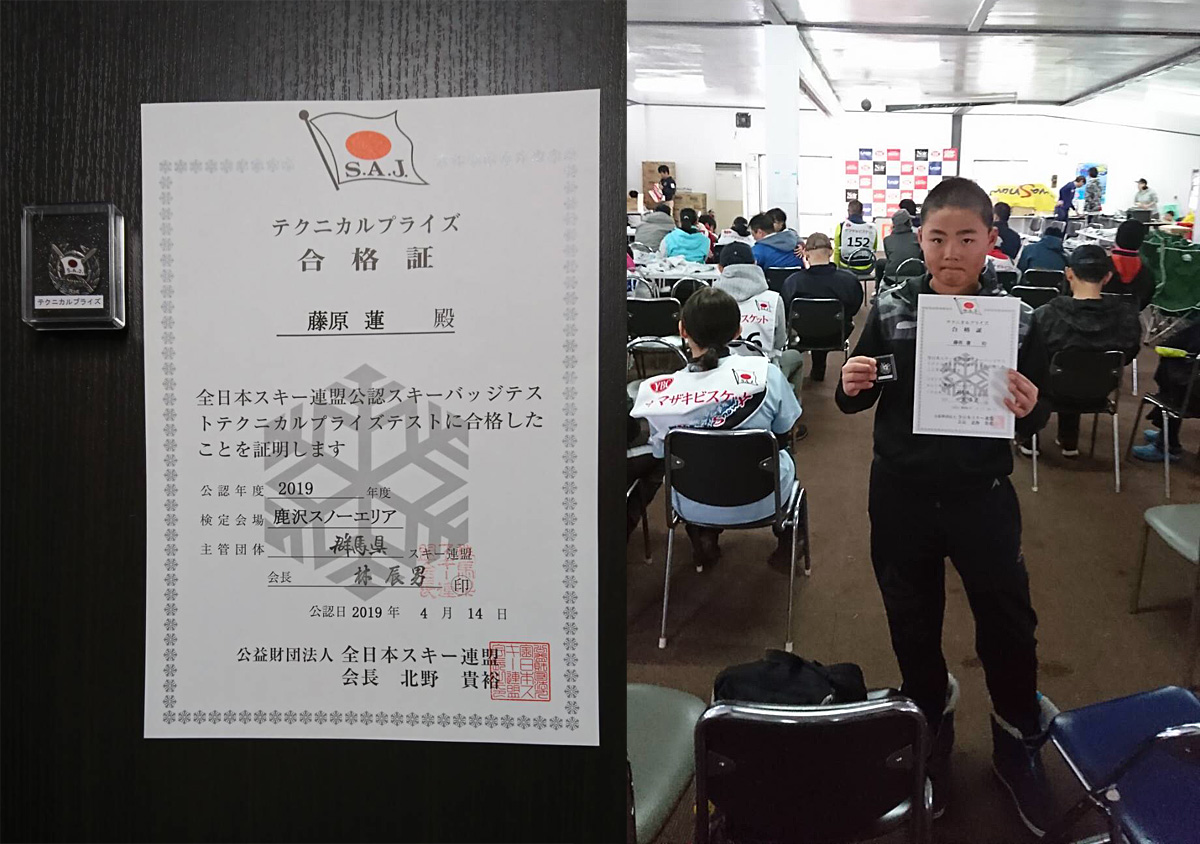 S.A.J.
テクニカルプライズ
合格証
藤原 蓮 殿
全日本スキー連盟公認スキーバッジテス
トテクニカルプライズテストに合格した
ことを証明します
公認年度 2019 年度
検定会場 鹿沢スノーエリア
主管団体 群馬県 スキー連盟
会長 林 辰男 印
公認日 2019 年 4 月 14 日
公益財団法人 全日本スキー連盟
会長 北野 貴裕
S.A.J.
テクニカルプライズ
152
スケット
YBC
マザキビスケット
テクニカルプライズ
合格証
藤原 蓮 殿